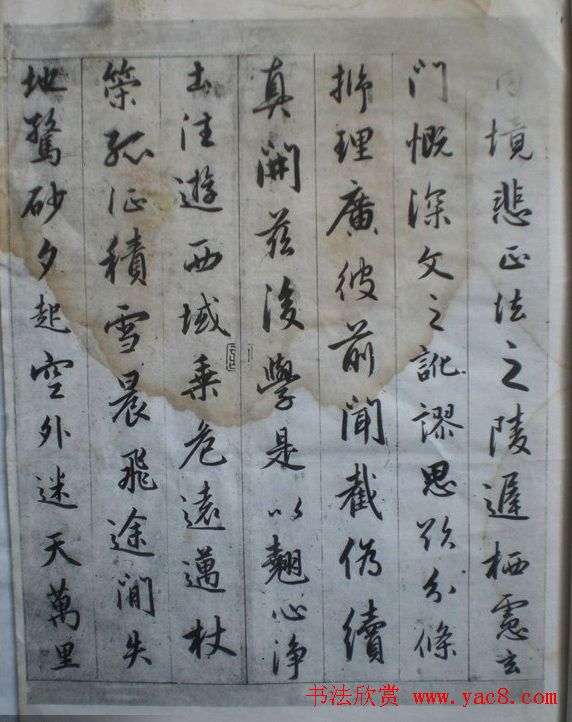 内境悲正法之陵遲栖慮玄
門慨深文之訛謬思欲分條
析理廣彼前聞截偽續
真開茲後學是以翹心淨
土往遊西域乘危遠邁杖
策孤征積雪晨飛途間失
地驚砂夕起空外迷天萬里
书法欣赏 www.yac8.com